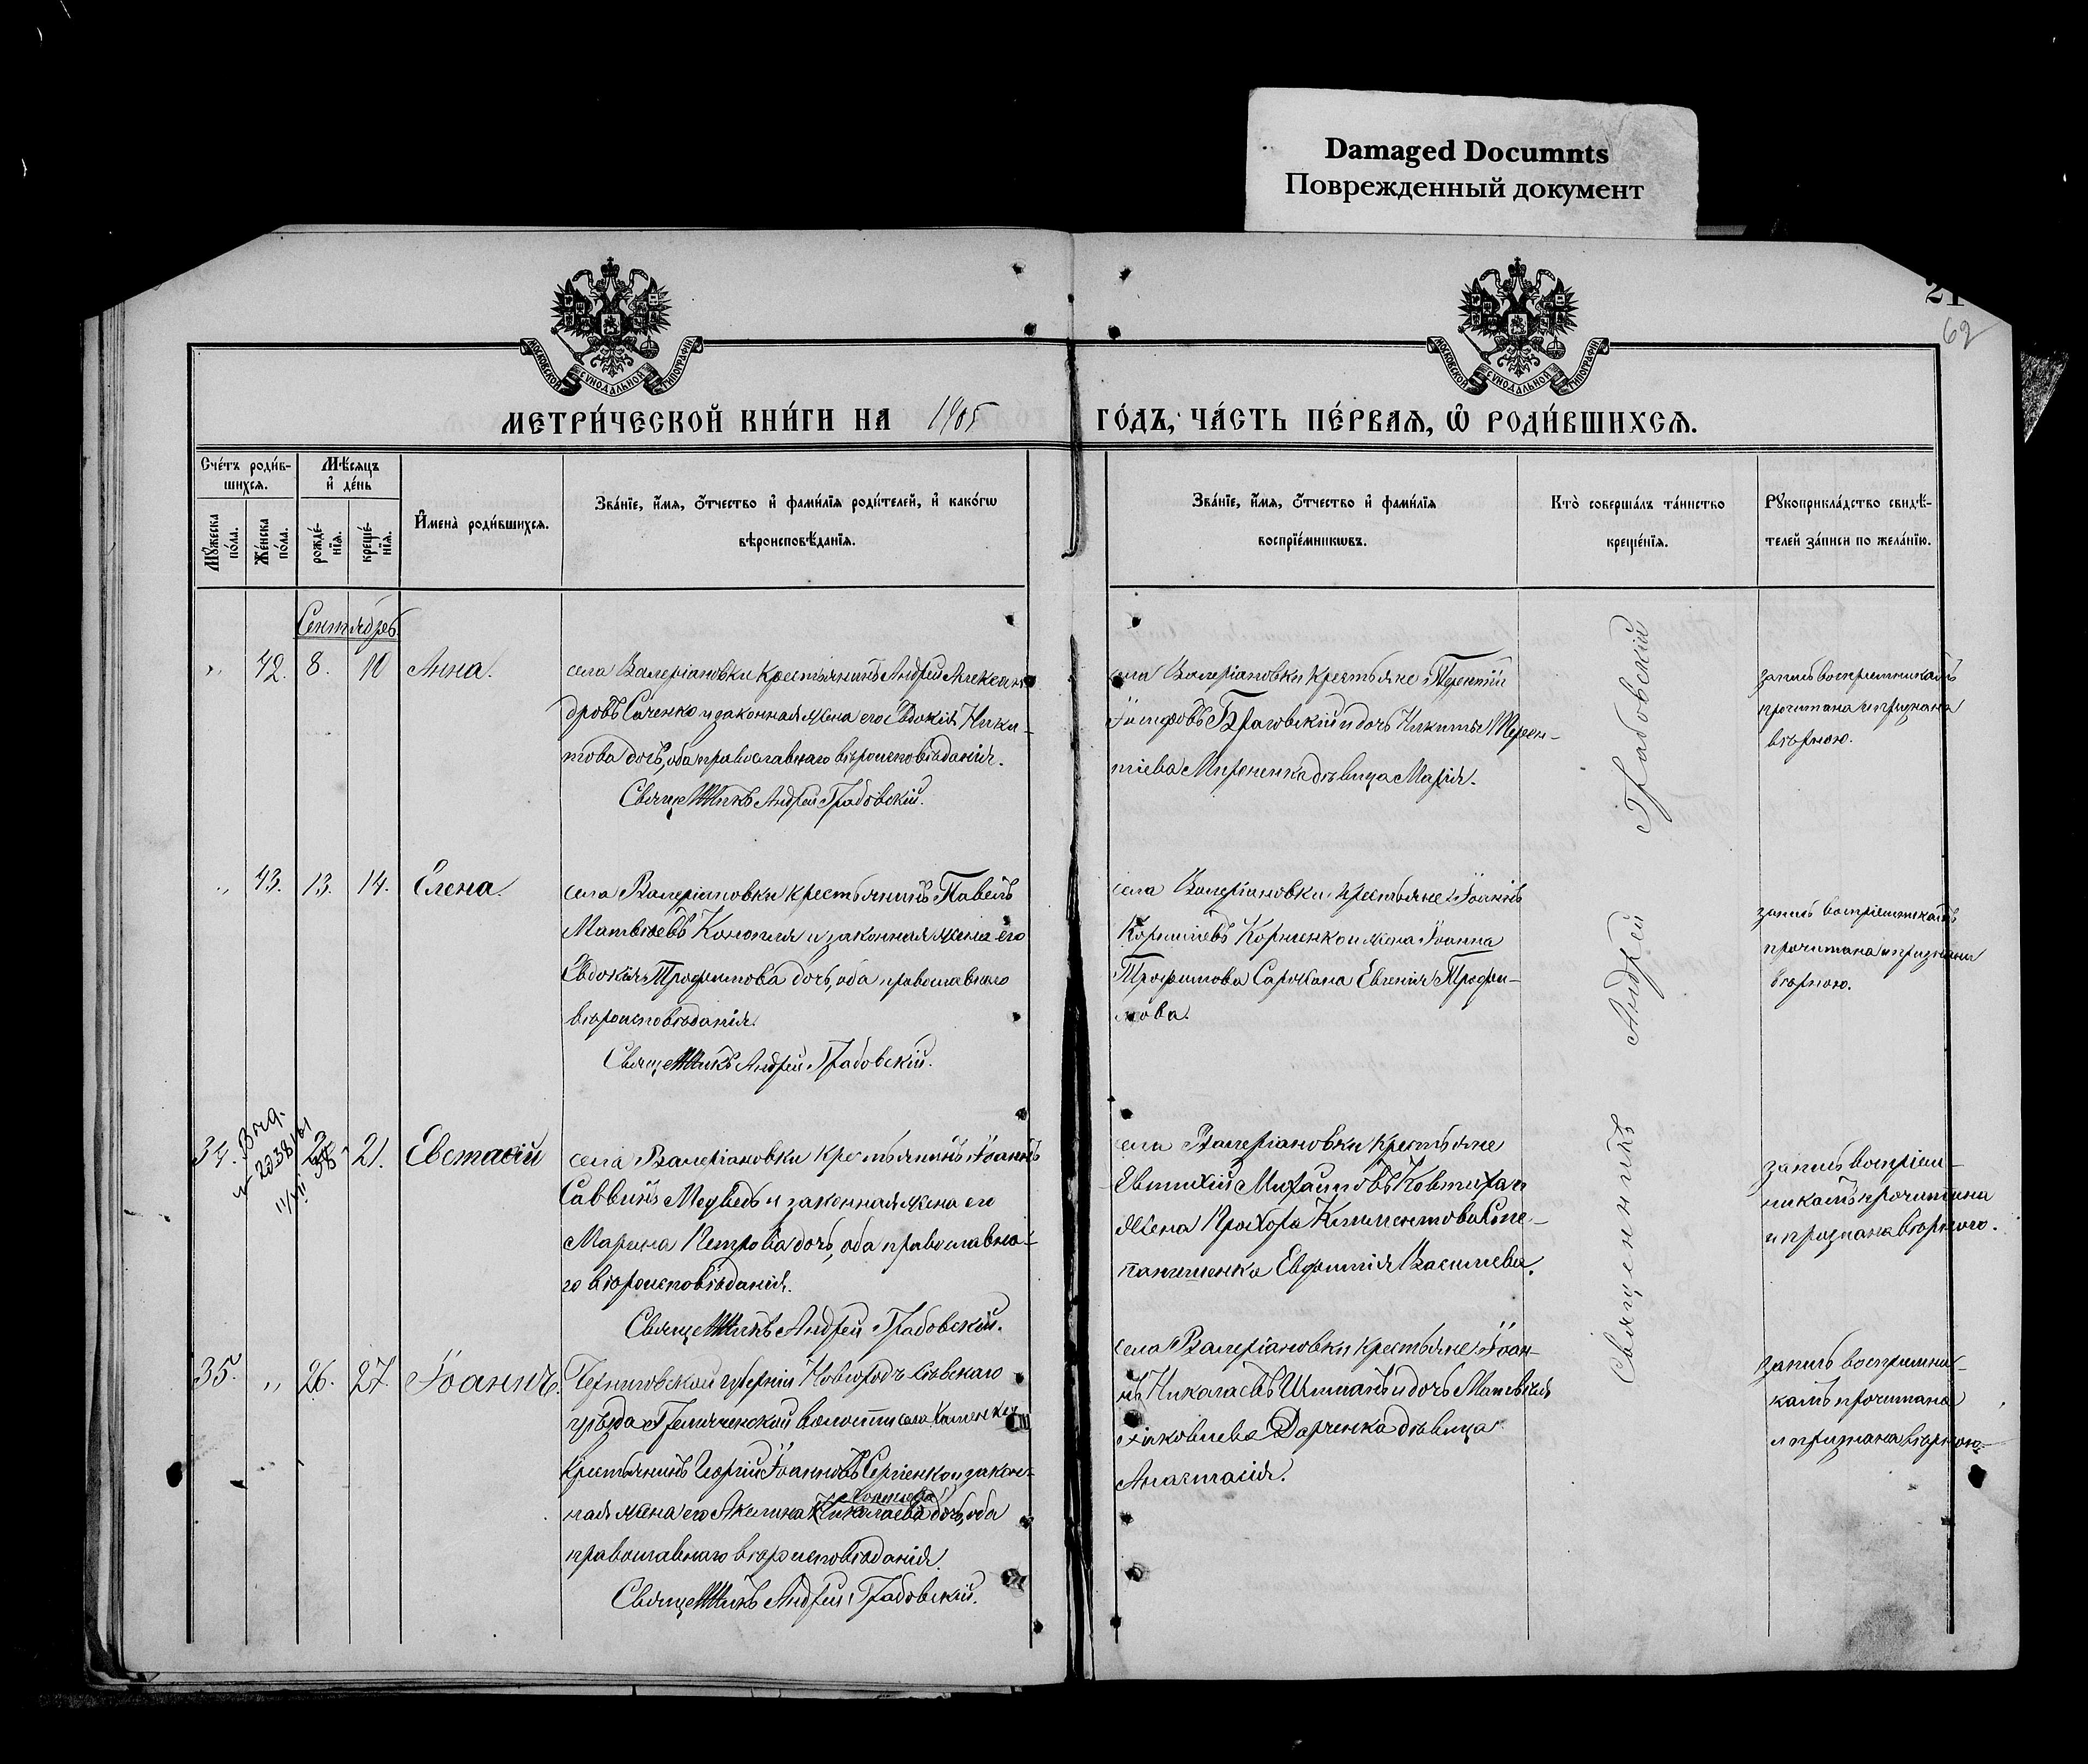 Damaged Documnts
Поврежденный документ
МОСКОВСКОЙ СѴНОДАЛЬНОЙ ТИПОГРАФІИ
МОСКОВСКОЙ СѴНОДАЛЬНОЙ ТИПОГРАФІИ
21
62
МЕТРИ́ЧЕСКОЙ КНИ́ГИ НА 1905 ГО́ДЪ, ЧА́СТЬ ПЕ́РВАѦ, Ѽ РОДИ́ВШИХСѦ.
Сче́тъ роди́в-
шихся.
Мѣ́сяцъ
и҆ де́нь
Мꙋ́жеска по́ла.
Же́нска по́ла.
рожде́-
нїя.
креще́-
нїя.
И҆мена̀ роди́вшихся.
Зва́нїе, и҆́мя, ѻ҆́тчество и҆ фами́лїя роди́телей, и҆ како́гѡ
вѣроисповѣ́данїя.
Зва́нїе, и҆́мя, ѻ҆́тчество и҆ фами́лїя
воспрїе́мникѡвъ.
Кто̀ соверша́лъ та́инство
креще́нїя.
Рꙋкоприкла́дство свидѣ́-
телей за́писи по жела́нїю.
Сентябрь
„ 42. 8. 10 Анна.
села Валеріановки крестьянинъ Андрей Алексан-
дровъ Саченко и законная жена его Евдокія Ники-
това дочь, оба православнаго вѣроисповѣданія.
Священникъ Андрей Грабовскій.
села Валеріановки крестьяне Терентій
Іосифовъ Браговскій и дочь Никиты Терен-
тіева Мироненка дѣвица Марія.
запись воспріемникамъ
прочитана и признана
вѣрною.
„ 43. 13. 14. Елена.
села Валеріановки крестьянинъ Павелъ
Матвѣевъ и законная жена его
Евдокія Трофимова дочь, оба православнаго
вѣроисповѣданія.
Священникъ Андрей Грабовскій.
села Валеріановки крестьяне: Іоаннъ
Корніенко и жена Іоанна
Трофимова Евгенія Трофи-
мова.
запись воспріемникамъ
прочитана и признана
вѣрною.
34. 21. Евстафій
села Валеріановки крестьянинъ Іоаннъ
Саввинъ Медведь и законная жена его
Марина Петрова дочь, оба православна-
го вѣроисповѣданія.
Священникъ Андрей Грабовскій.
села Валеріановки крестьяне
Евтихій Михаиловъ
жена Прохора Климентова Сте-
паненка Евфимія Васильева.
запись воспріем-
никамъ прочитана
и признана вѣрною.
35. „ 26. 27. Іоаннъ.
Черниговской губерніи Новгородъ-Сѣверскаго
уѣзда Гремячской волости села Каменки
крестьянинъ Георгій Іоанновъ Сергіенко и закон-
ная жена его Акилина Николаева дочь, оба
православнаго вѣроисповѣданія
Священникъ Андрей Грабовскій.
села Валеріановки крестьяне: Іоан-
нъ Николаевъ и дочь
Іаковлева дѣвица
Анастасія.
запись воспріемни-
камъ прочитана
и признана вѣрною.
Священникъ Андрей Грабовскій